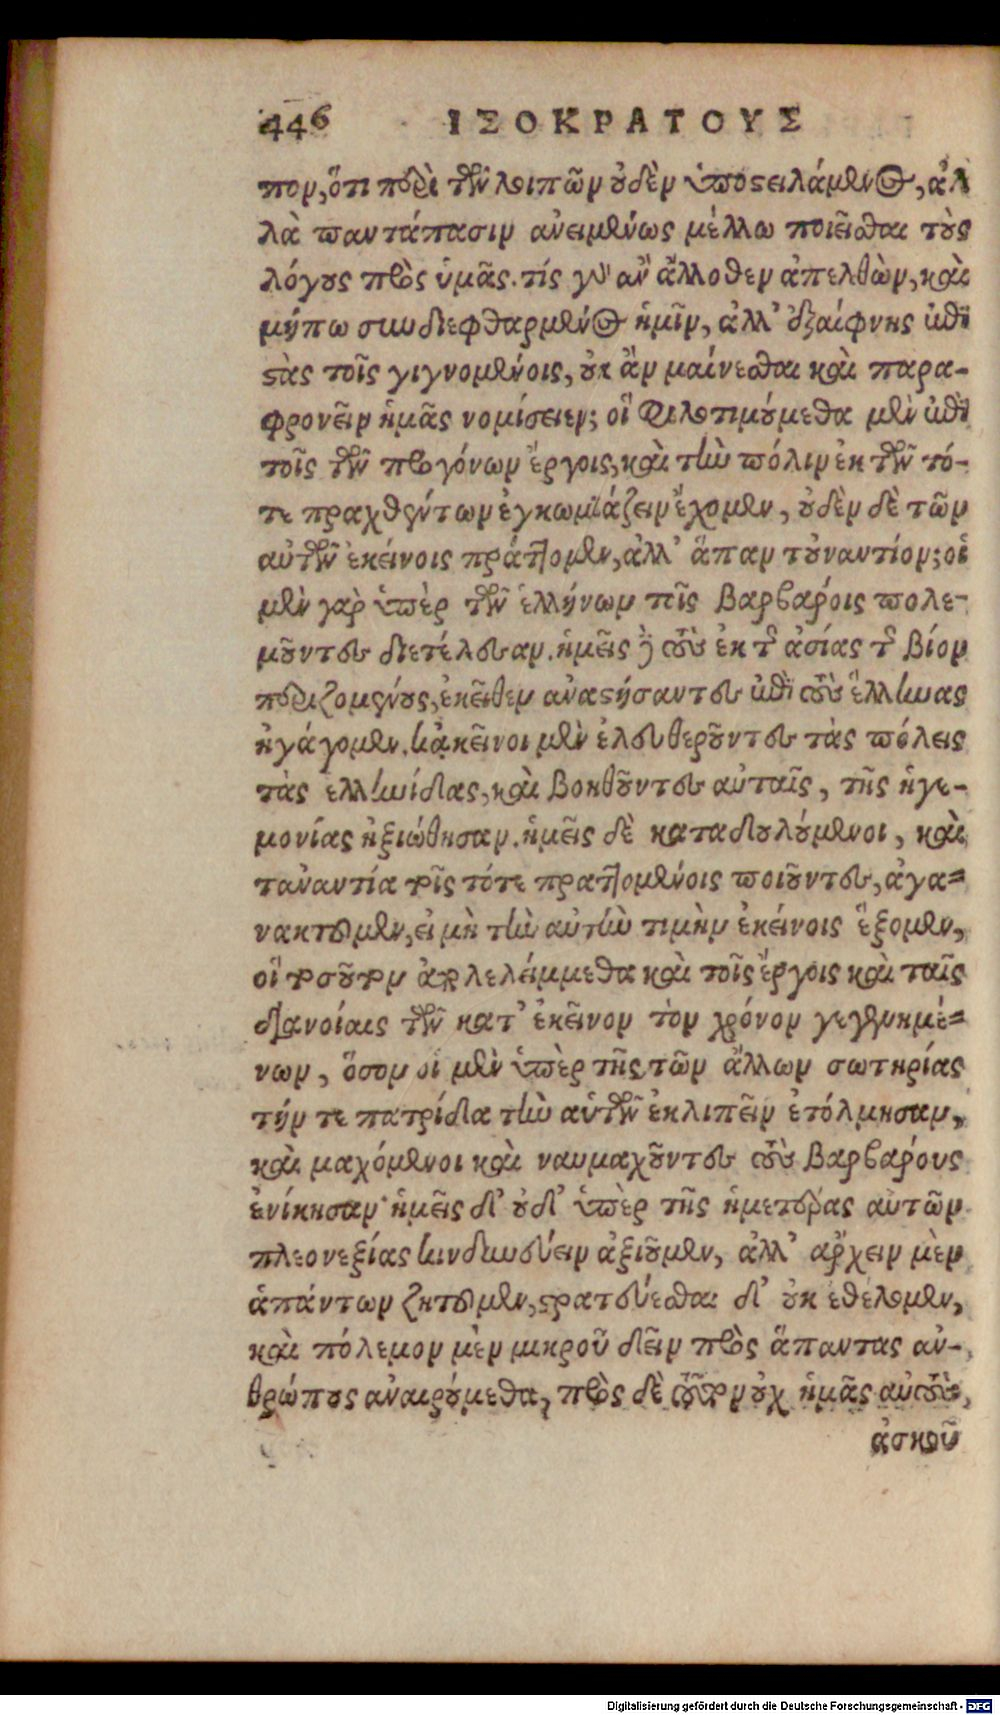 446 ΙΣΟΚΡΑΤΟΥΣ
πον, ὅτι περὶ τῶν λοιπῶν οὐδὲν ὑποστειλάμενος, ἀλ
λὰ παντάπασιν ἀνειμένως μέλλω ποιεῖσθαι τοὺς
λόγους πρὸς ὑμᾶς. τίς γὰρ ἂν ἄλλοθεν ἀπελθὼν, καὶ
μήπω συνδιεφθαρμένος ἡμῖν, ἀλλ' ἐξαίφνης ἐπι
στὰς τοῖς γιγνομένοις, οὐκ ἂν μαίνεσθαι καὶ παρα-
φρονεῖν ἡμᾶς νομίσειεν; οἳ φιλοτιμούμεθα μὲν ἐπὶ
τοῖς τῶν προγόνων ἔργοις, καὶ τὴν πόλιν ἐκ τῶν τό-
τε πραχθέντων ἐγκωμιάζειν ἔχομεν, οὐδὲν δὲ τῶν
αὐτῶν ἐκείνοις πράττομεν, ἀλλ' ἅπαν τοὐναντίον; οἱ
μὲν γὰρ ὑπὲρ τῶν ἑλλήνων τοῖς βαρβάροις πολε-
μοῦντες διετέλεσαν. ἡμεῖς δὲ τοὺς ἐκ τῆς ἀσίας τὸν βίον
ποριζομένους, ἐκεῖθεν ἀναστήσαντες ἐπὶ τοὺς ἕλληνας
ἠγάγομεν. κἀκεῖνοι μὲν ἐλευθεροῦντες τὰς πόλεις
τὰς ἑλληνίδας, καὶ βοηθοῦντες αὐταῖς, τῆς ἡγε-
μονίας ἠξιώθησαν. ἡμεῖς δὲ καταδουλούμενοι, καὶ
τἀναντία τοῖς τότε πραττομένοις ποιοῦντες, ἀγα-
νακτοῦμεν, εἰ μὴ τὴν αὐτὴν τιμὴν ἐκείνοις ἕξομεν,
οἳ τοσοῦτον ἀπολελείμμεθα καὶ τοῖς ἔργοις καὶ ταῖς
διανοίαις τῶν κατ' ἐκεῖνον τὸν χρόνον γεγενημέ-
νων, ὅσον οἱ μὲν ὑπὲρ τῆς τῶν ἄλλων σωτηρίας
τήν τε πατρίδα τὴν αὑτῶν ἐκλιπεῖν ἐτόλμησαν,
καὶ μαχόμενοι καὶ ναυμαχοῦντες τοὺς βαρβάρους
ἐνίκησαν· ἡμεῖς δ' οὐδ' ὑπὲρ τῆς ἡμετέρας αὐτῶν
πλεονεξίας κινδυνεύειν ἀξιοῦμεν, ἀλλ' ἄρχειν μὲν
ἁπάντων ζητοῦμεν, στρατεύεσθαι δ' οὐκ ἐθέλομεν,
καὶ πόλεμον μὲν μικροῦ δεῖν πρὸς ἅπαντας ἀν-
θρώπους ἀναιρούμεθα, πρὸς δὲ τοῦτον οὐχ ἡμᾶς αὐτοὺς,
ἀσκοῦ
Digitalisierung gefördert durch die Deutsche Forschungsgemeinschaft - DFG